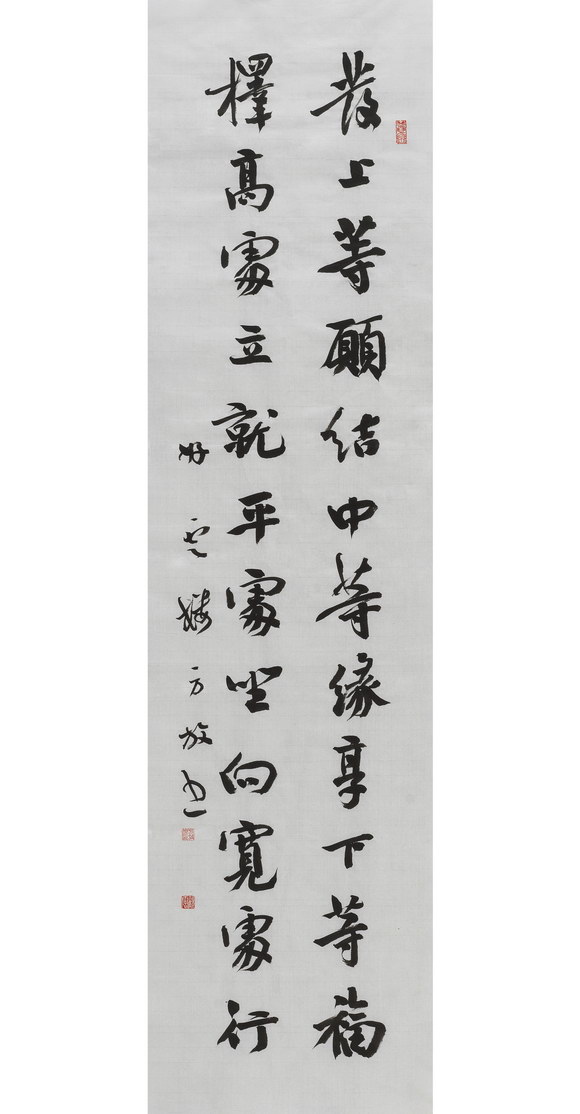 發上等願結中等緣享下等福
擇高處立就平處坐向寬處行
方放書